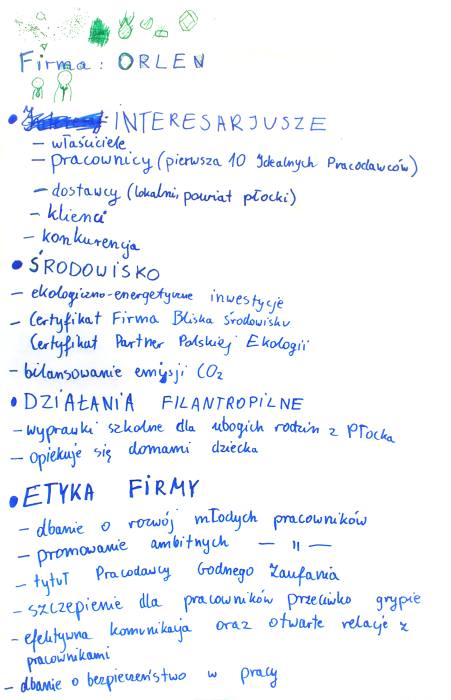 Firma: ORLEN
• INTERESARJUSZE
– właściciele
– pracownicy (pierwsza 10 Idealnych Pracodawców)
– dostawcy (lokalni, powiat płocki)
– klienci
– konkurencja
• ŚRODOWISKO
– ekologiczno-energetyczne inwestycje
– Certyfikat Firma Bliska środowisku
Certyfikat Partner Polskiej Ekologii
– bilansowanie emisji CO₂
• DZIAŁANIA FILANTROPILNE
– wyprawki szkolne dla ubogich rodzin z Płocka
– opiekuje się domami dziecka
• ETYKA FIRMY
– dbanie o rozwój młodych pracowników
– promowanie ambitnych — " —
– tytuł Pracodawcy Godnego Zaufania
– szczepienie dla pracowników przeciwko grypie
– efektywna komunikacja oraz otwarte relacje z
pracownikami
– dbanie o bezpieczeństwo w pracy